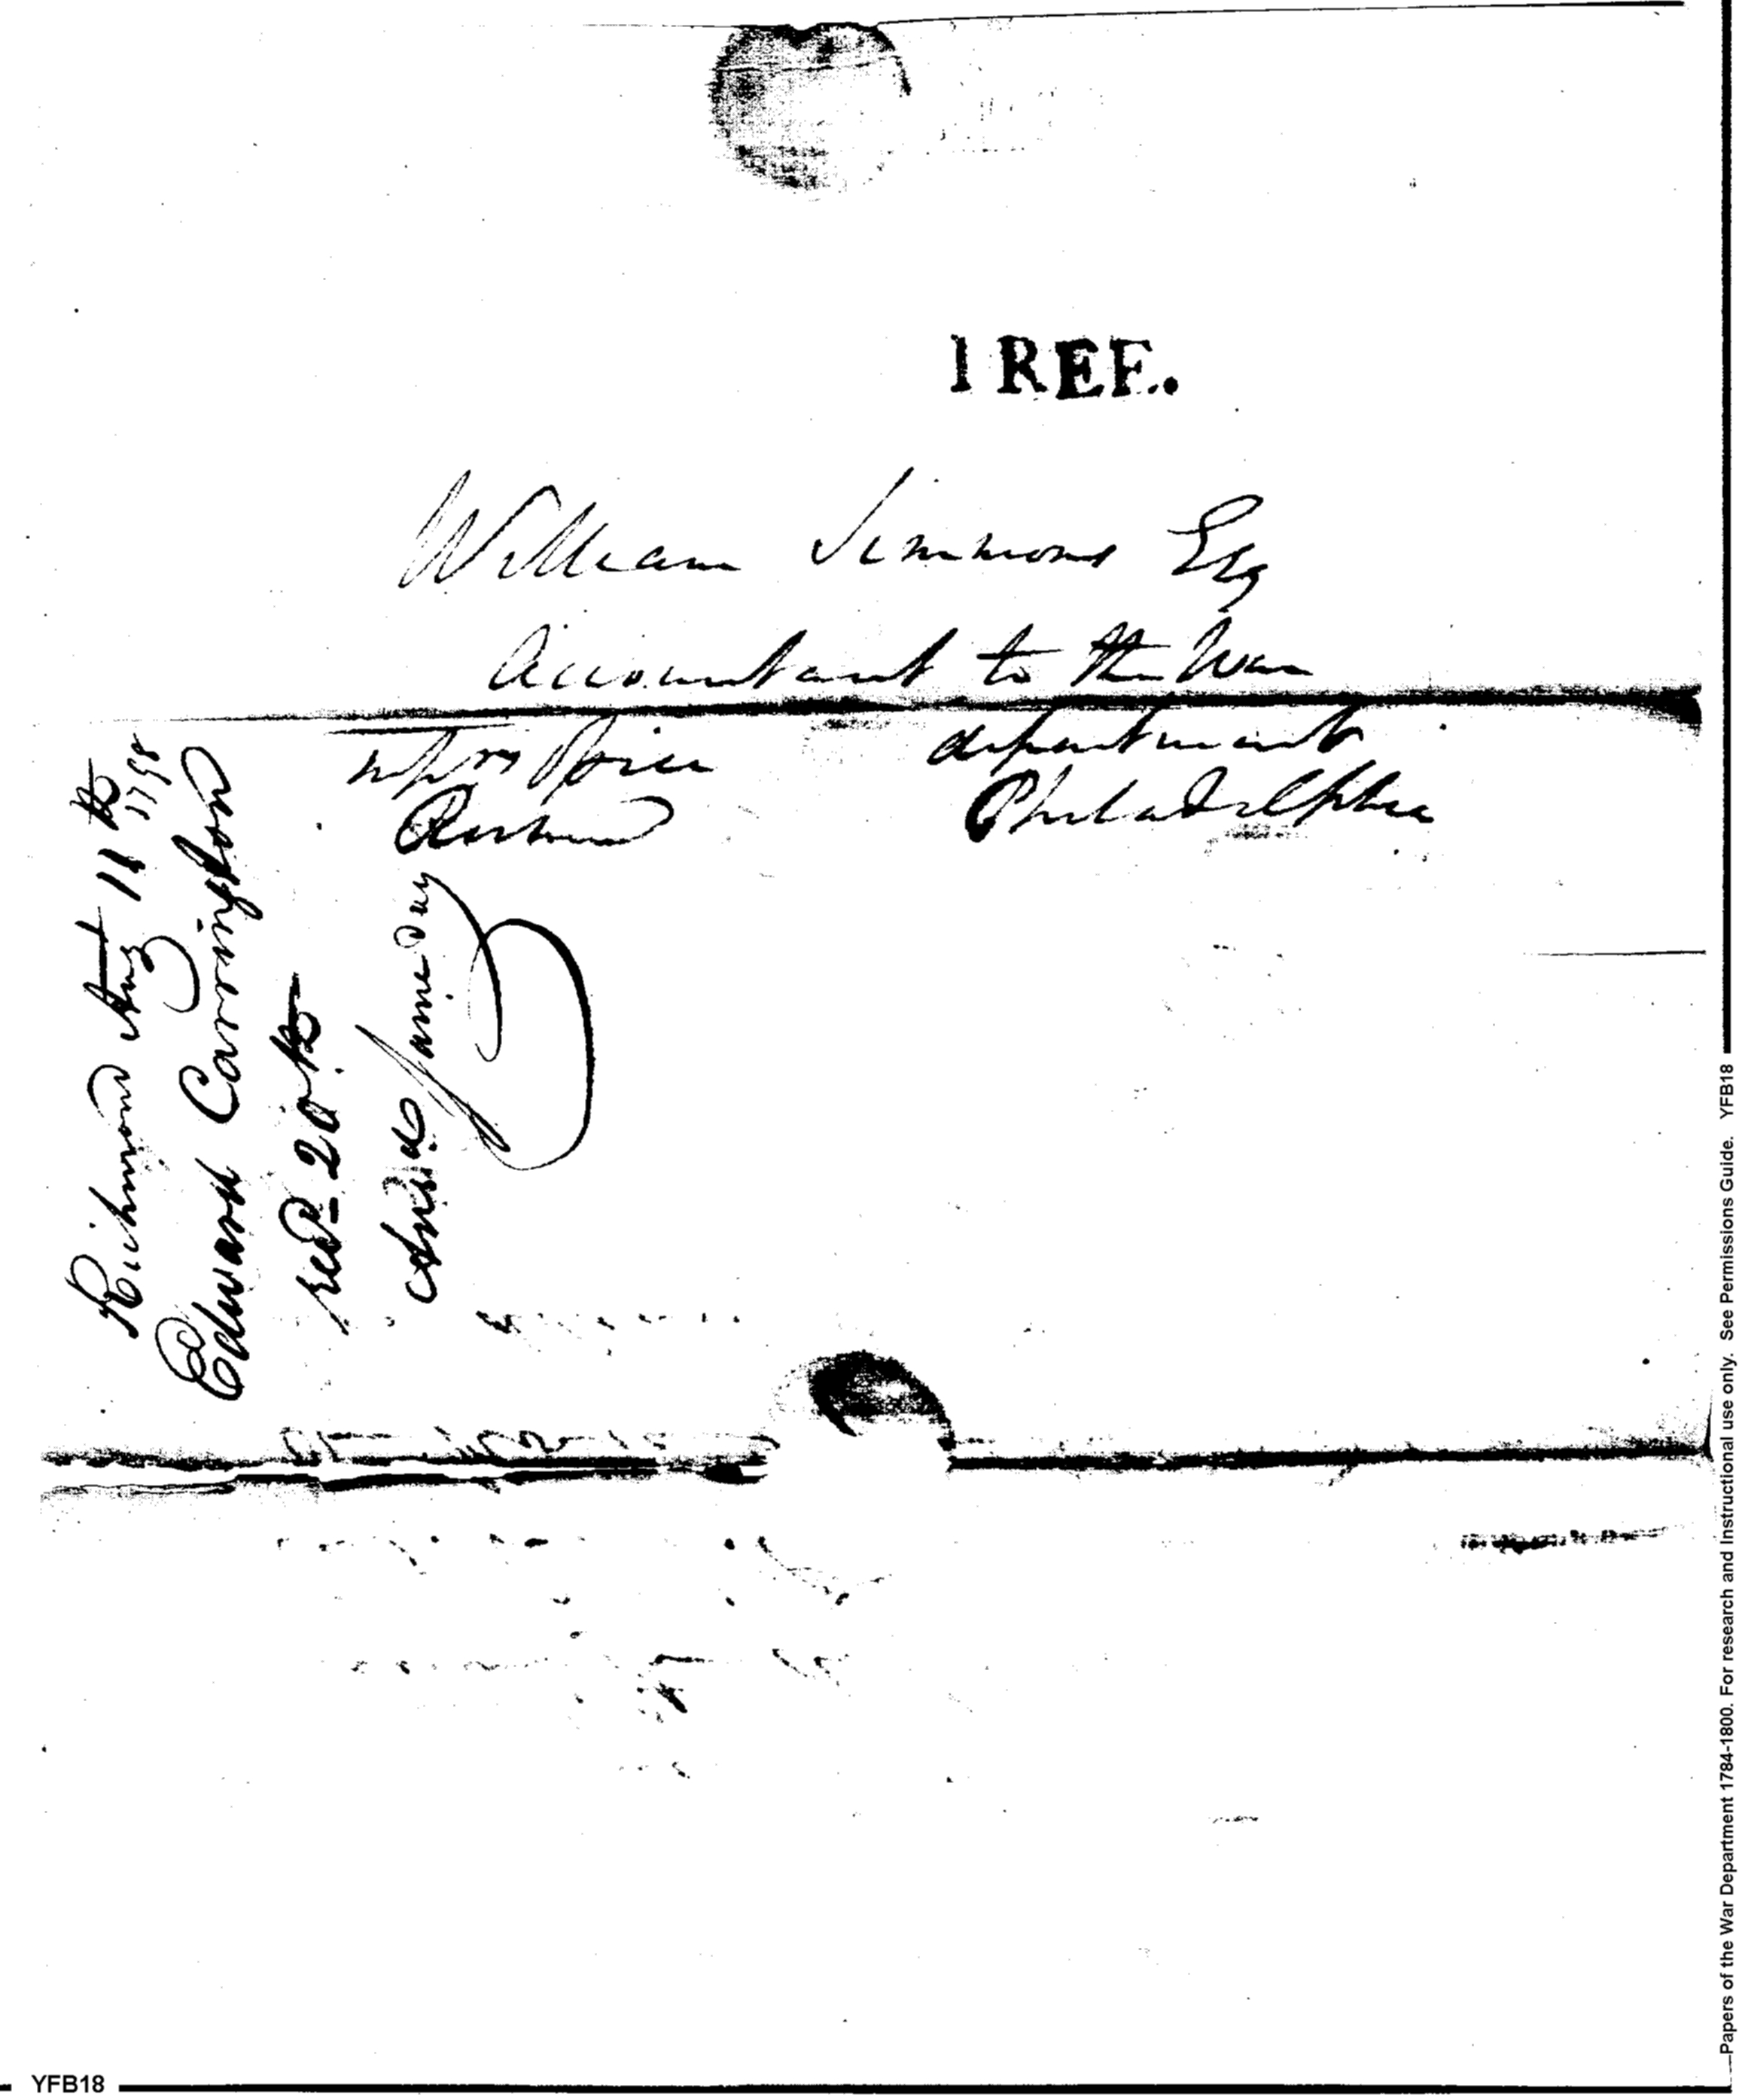 1 REE.
William Simmons Esq
Accountant to the War
department
Philadelphia
Richmond Augt 11th 1798
Edward Carrington
recd 20th
Ansd same day
Papers of the War Department 1784-1800. For research and Instructional use only. See Permissions Guide. YFB18
YFB18